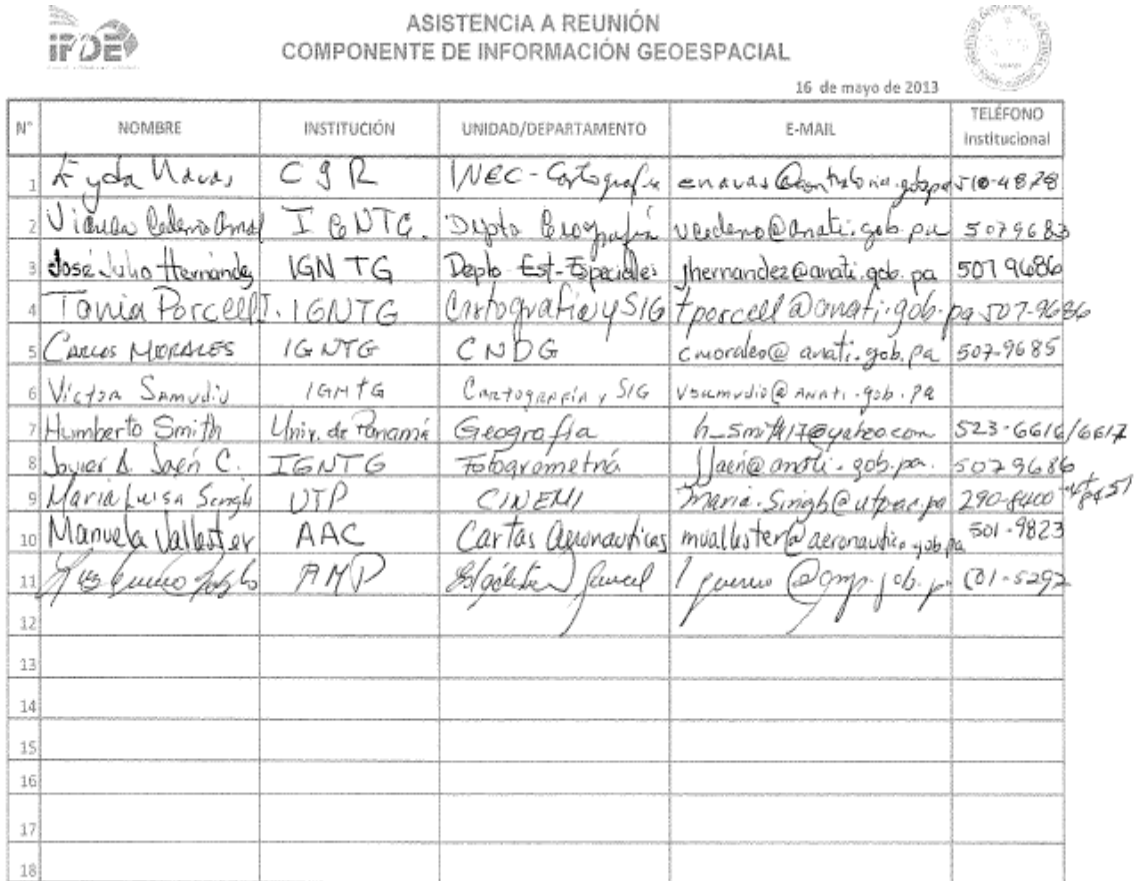 IPDE
ASISTENCIA A REUNIÓN
COMPONENTE DE INFORMACIÓN GEOESPACIAL
16 de mayo de 2013
N° NOMBRE INSTITUCIÓN UNIDAD/DEPARTAMENTO E-MAIL TELÉFONO Institucional
1 Eyda Navas CGR INEC-Cartografía enavas@contraloria.gob.pa 510-4828
2 IGNTG. Depto Geografía vcedeno@anati.gob.pa 5079683
3 José Julio Hernández IGNTG Depto Est-Especiales jhernandez@anati.gob.pa 507 9686
4 Tania Porcell J. IGNTG Cartografia y SIG tporcell@anati.gob.pa 507-9686
5 CARLOS MORALES IGNTG CNDG cmorales@anati.gob.pa 507-9685
6 Víctor Samudio IGNTG Cartografía y SIG vsamudio@anati.gob.pa
7 Humberto Smith Univ. de Panamá Geografia h_smith17@yahoo.com 523-6616/6617
8 Javier A. Jaén C. IGNTG Fotogrametría jjaen@anati.gob.pa. 5079686
9 Maria Luisa Singh UTP CINEMI maria.singh@utp.ac.pa 290-8400 ext 8451
10 Manuela Vallester AAC Cartas Aeronauticas mvallester@aeronautica.gob.pa 501-9823
11 AMP 501-5292
12
13
14
15
16
17
18